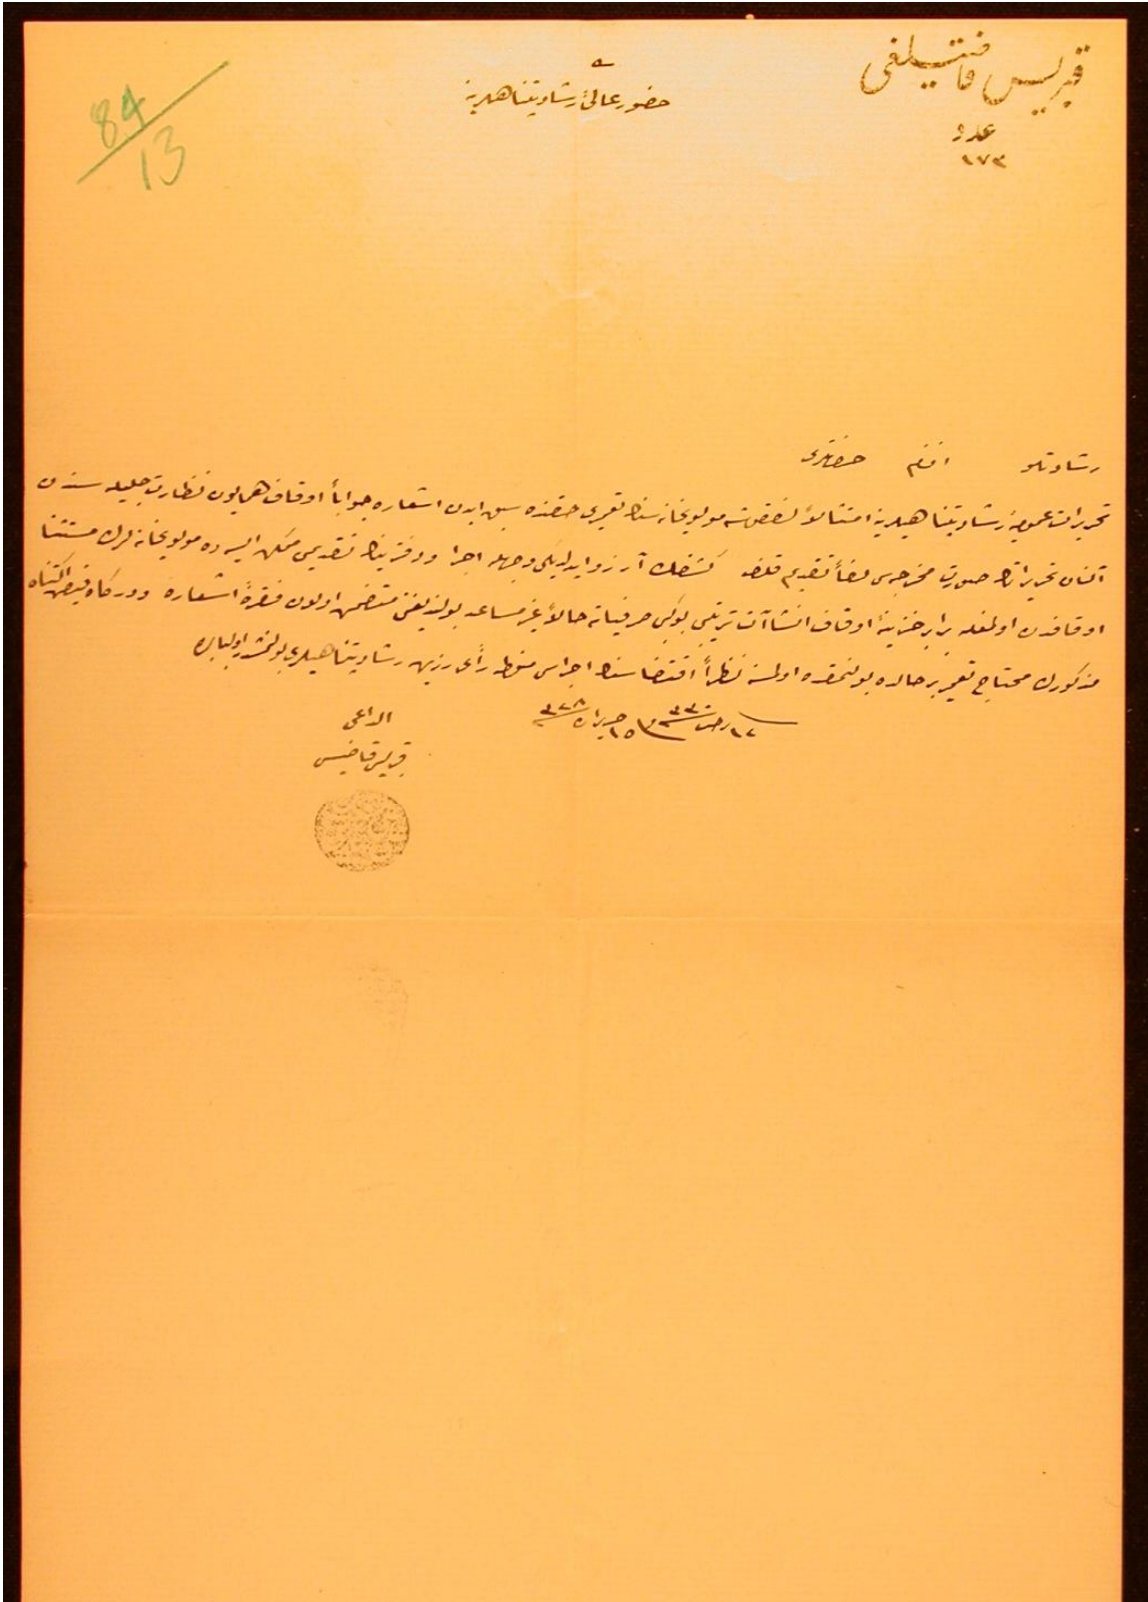 قبریس قاضیلغی
عدد
١٧٣
حضور عالئ رشادتپناهیلرینه
84/13
رشادتلو افندم حضرتلری
تحریرات عمومیۀ رشادتپناهیلرینه امتثالاً لفقوشه مولویخانه سنك تعمیری حقنده سبق ایدن اشعاره جواباً اوقاف همایون نظارت جلیله سندن
آلنان تحریراتك صورت مخرجه سی لفاً تقدیم قلندی کشفك آرزو ایدیلدیکی وجهله اجرا و دفترینك تقدیمی ممکن ایسه ده مولویخانه لرك مستثنا
اوقافدن اولمغله برابر خزینۀ اوقاف انشاآت ترتیبی بوکبی صرفیاته حالاً غیر مساعد بولندیغنی متضمن اولان فقرۀ اشعاره و درکاه فیض اکتناه
مذکورك محتاج تعمیر بر حالده بولنمقده اولمسنه نظراً اقتضاسنك اجراسی منوط رأی رزین رشادتپناهیلری بولنمشدر اولبابده
١٢ رجب ٣٣٠ و ١٥ حزیران ٣٢٨
الداعی
قبریس قاضیسی